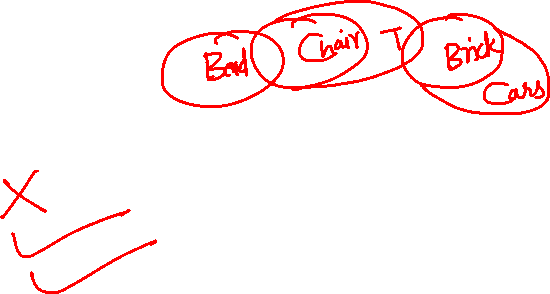 Bed Chair T Brick
Cars